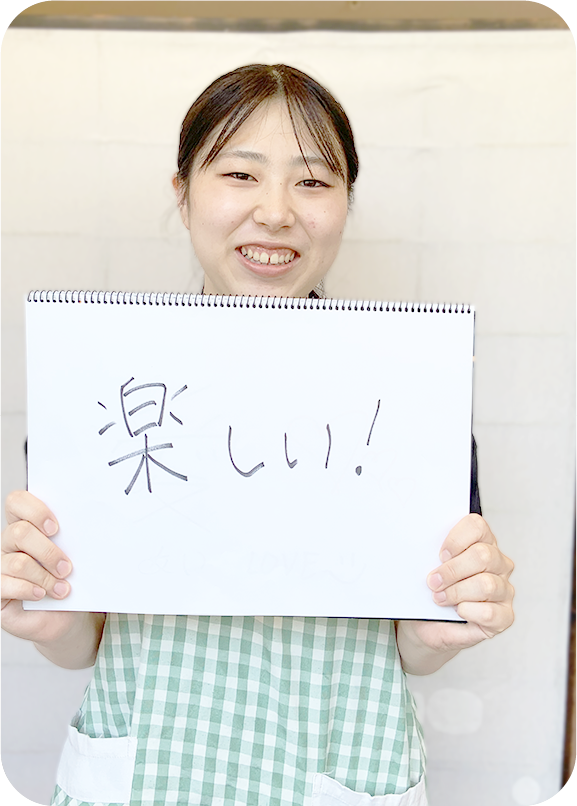 楽しい!